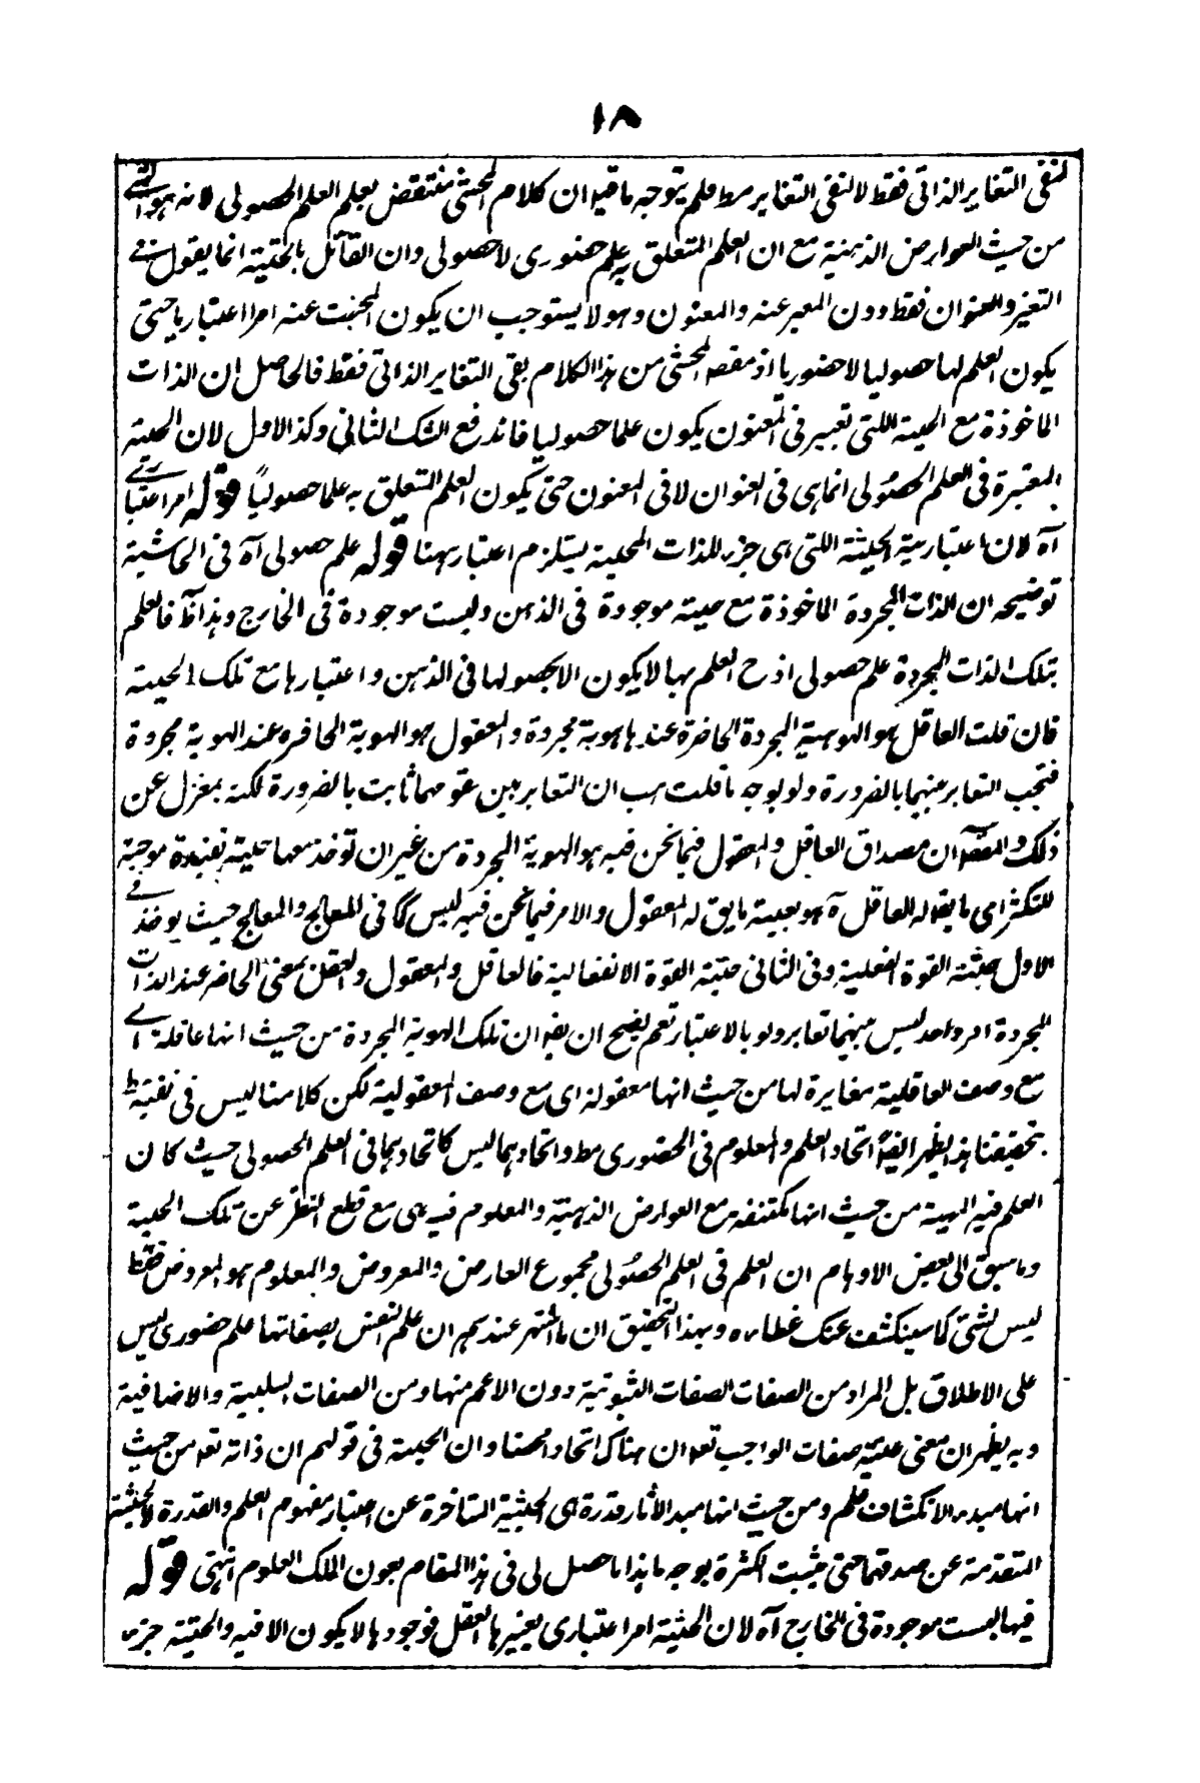 ١٨
لنفى التغاير الذاتى فقط لا لنفى التغاير مط فلم يتوجه ما قيل ان كلام المحشى منتقض بعلم العلم الحصولى لانه هو الشئ
من حيث العوارض الذهنية مع ان العلم المتعلق به علم حضورى لا حصولى وان القائل بالحيثية انما يقول فى
التعبير والعنوان فقط دون المعبر عنه والمعنون وهو لا يستوجب ان يكون المجنت عنه امرا اعتباريا حتى
يكون العلم لها حصوليا لا حضوريا اذ مقصد المحشى من هذا الكلام بقى التغاير الذاتى فقط فالحاصل ان الذات
الماخوذة مع الحيثية اللتى تعبير فى المعنون يكون علما حصوليا فاندفع الشك الثانى وكذا الاول لان الحيثية
المعتبرة فى العلم الحصولى انما هى فى العنوان لا فى المعنون حتى يكون العلم المتعلق به علما حصولياً قوله امر اعتبارى
آه لان اعتبارية الحيثية اللتى هى جزء للذات المحيثية يستلزم اعتباريتها قوله علم حصولى آه فى الحاشية
توضيحه ان الذات المجردة الماخوذة مع حيثية موجودة فى الذهن وليست موجودة فى الخارج وهذا ظ فالعلم
بتلك الذات المجردة علم حصولى اذ ح العلم بها لا يكون الا بحصولها فى الذهن و اعتبارها مع تلك الحيثية
فان قلت العاقل هو الهوية المجردة الحاضرة عندها هوية مجردة والمعقول هو الهوية الحاضرة عند الهوية مجردة
فتجب التغاير بينهما بالضرورة ولو بوجه ما قلت هب ان التغاير بين مفهومهما ثابت بالضرورة لكنه بمعزل عن
ذلك والمقصود ان مصداق العاقل والمعقول فيما نحن فيه هو الهوية المجردة من غير ان توخذ معها حيثية تقييدية موجبة
للتكثر اى ما يقال له العاقل آه هو بعينه ما يق له المعقول والامر فيما نحن فيه ليس كما فى المعالج والمعالج حيث يوخذ فى
الاول حيثية القوة الفعلية وفى الثانى حيثية القوة الانفعالية فالعاقل والمعقول والعقل بمعنى الحاضر عند الذات
المجردة امر واحد ليس بينهما تغاير ولو بالاعتبار نعم يصح ان يق ان تلك الهوية المجردة من حيث انها عاقلة اى
مع وصف العاقلية مغايرة لها من حيث انها معقولة اى مع وصف المعقولية لكن كلامنا ليس فى
بتحقيقنا هذا يظهر ايضا اتحاد العلم والمعلوم فى الحضورى مط واتحادهما ليس كاتحادهما فى العلم الحصولى حيث كان
العلم فيه المهية من حيث انها مكتنفة مع العوارض الذهنية والمعلوم فيه هى مع قطع النظر عن تلك الحيثية
وما سبق الى بعض الاوهام ان العلم فى العلم الحصولى مجموع العارض والمعروض والمعلوم هو المعروض فقط
ليس بشئ كما سينكشف عنك غطاءه وبهذا التحقيق ان ما اشتهر عندهم ان علم النفس بصفاتها علم حضورى ليس
على الاطلاق بل المراد من الصفات الصفات الثبوتية دون الاعم منها ومن الصفات السلبية والاضافية
وبه يظهر ان معنى عينية صفات الواجب تعالى ان هناك اتحادا محضا وان الحيثية فى قولهم ان ذاته تعالى من حيث
انها مبدء الانكشاف علم ومن حيث انها مبدء الآثار قدرة هى الحيثية المتاخرة عن اعتبار مفهوم العلم والقدرة لا الحيثية
المتقدمة عن صدقهما حتى يثبت الكثرة بوجه ما هذا ما حصل لى فى هذا المقام بعون الملك العلوم انتهى قوله
فيها ليست موجودة فى الخارج آه لان الحيثية امر اعتبارى يعتبرها العقل فوجودها لا يكون الا فيه والحيثية جزء